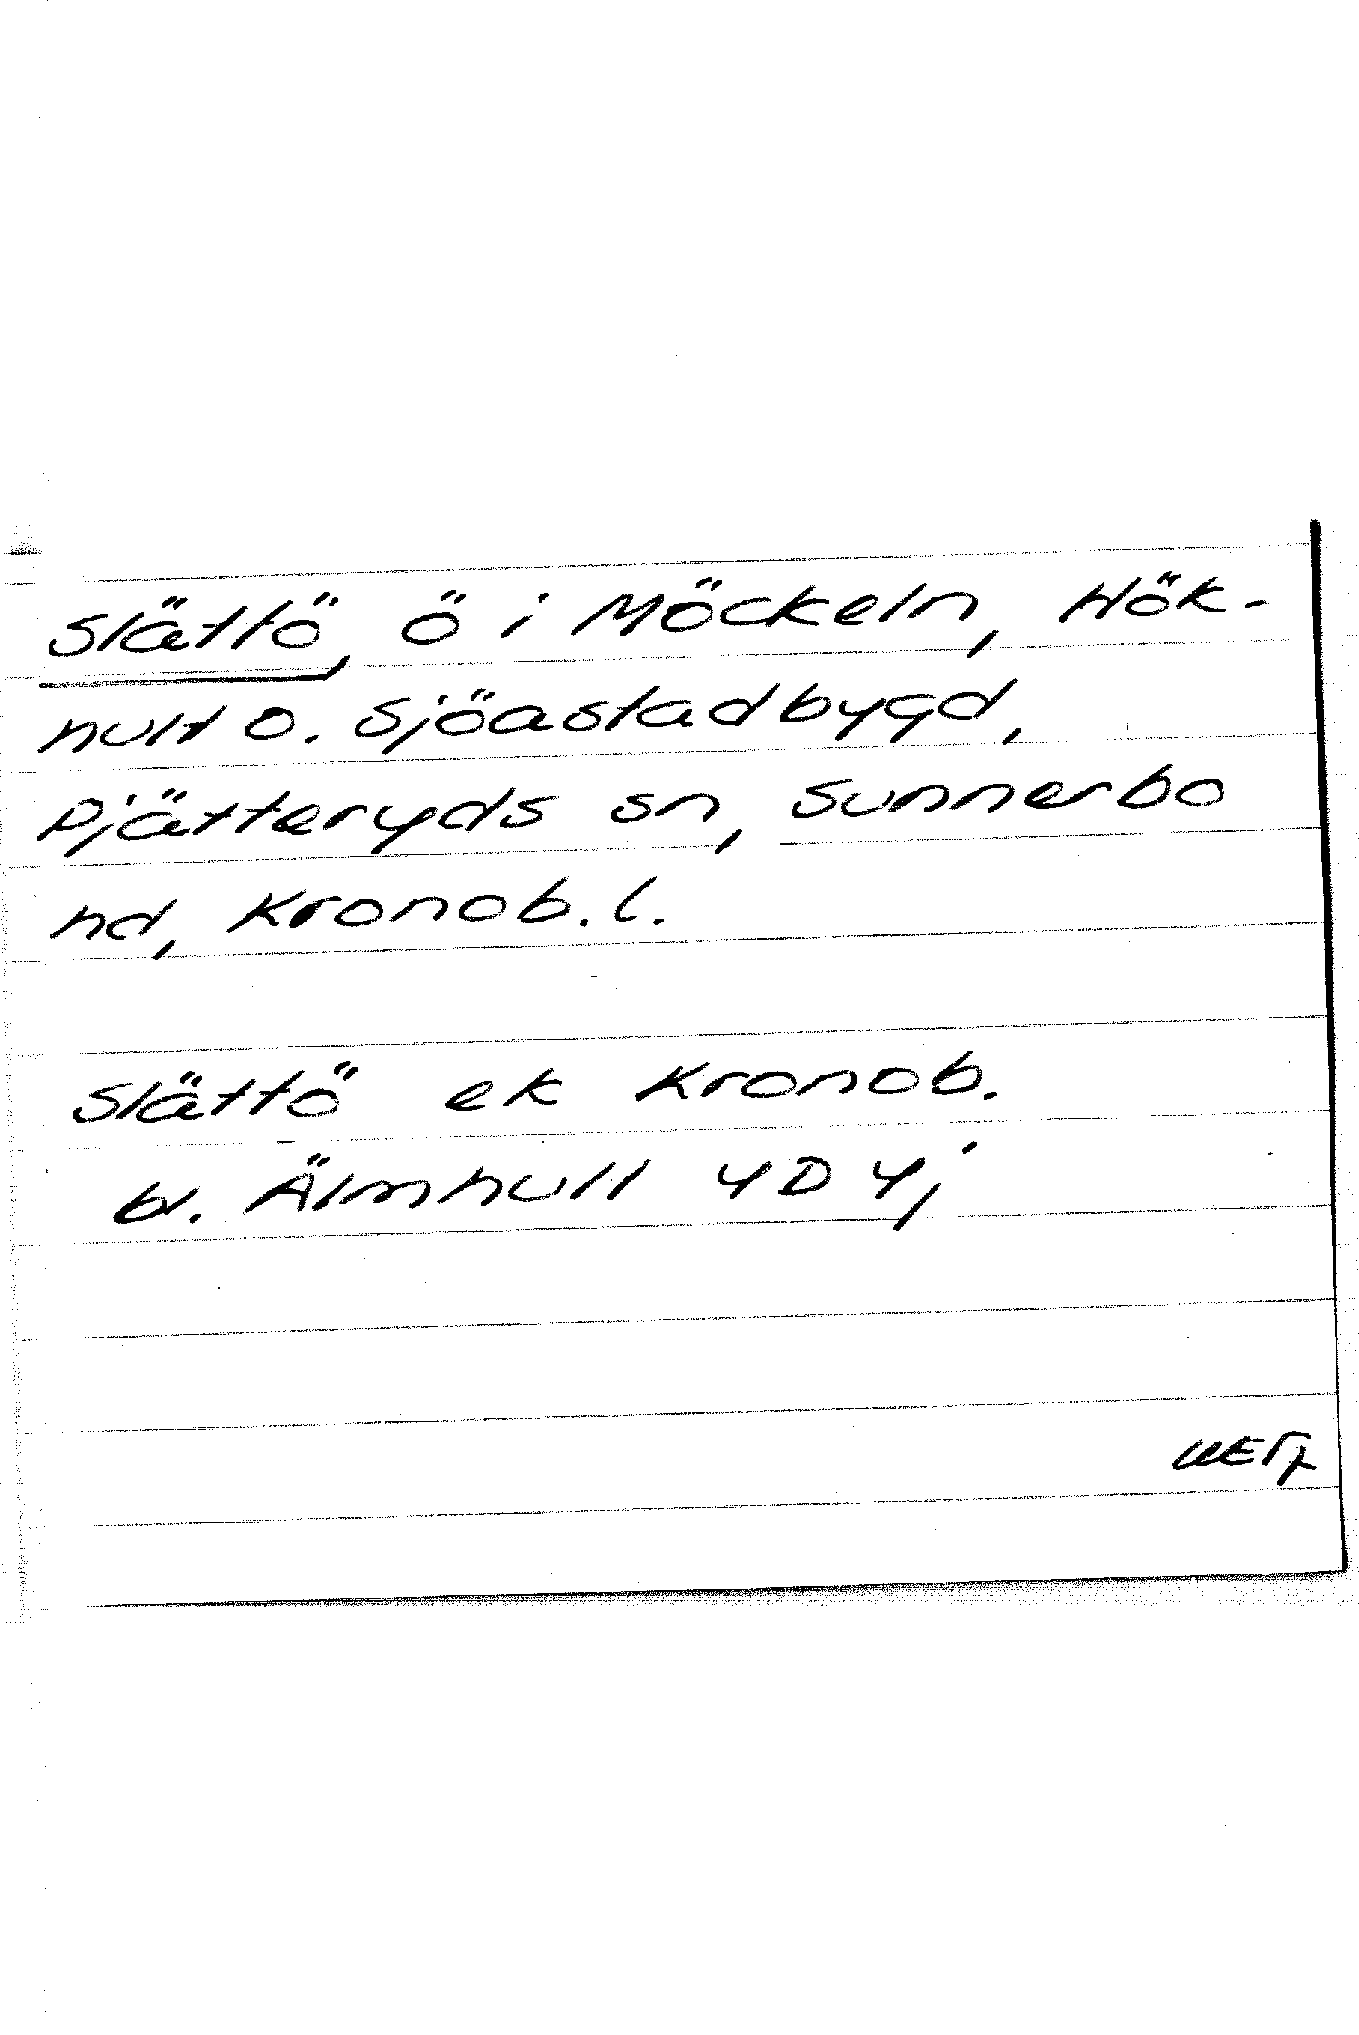 Slättö, ö i Möckeln, Hök-
hult o. Sjöastadbygd,
Pjätteryds sn, Sunnerbo
hd, Kronob. l.
Slättö ek Kronob.
bl. Älmhult 4D 4j